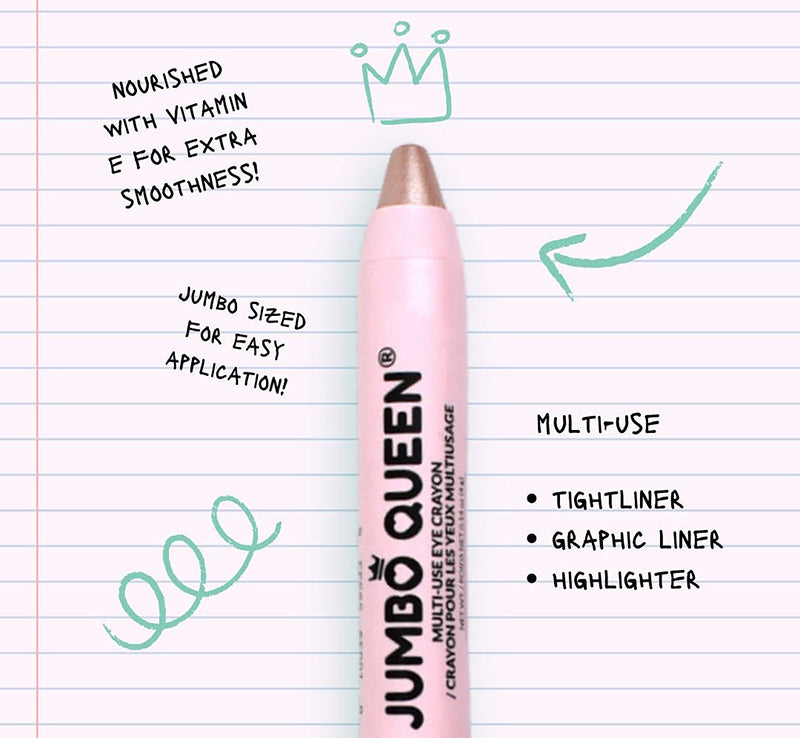 NOURISHED
WITH VITAMIN
E FOR EXTRA
SMOOTHNESS!
JUMBO SIZED
FOR EASY
APPLICATION!
JUMBO QUEEN®
MULTI-USE EYE CRAYON
/ CRAYON POUR LES YEUX MULTIUSAGE
MULTI-USE
• TIGHTLINER
• GRAPHIC LINER
• HIGHLIGHTER